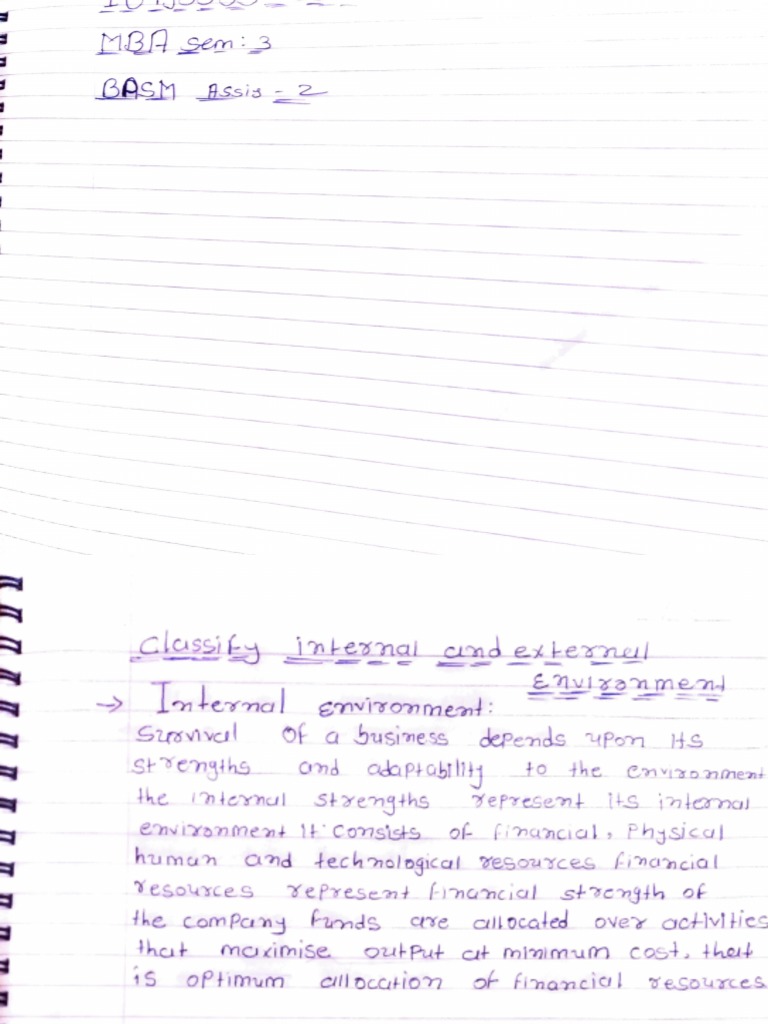 MBA sem: 3
BASM Assis - 2
Classify internal and external
Environment
→ Internal environment:
Survival of a business depends upon its
strengths and adaptability to the environment
the internal strengths represent its internal
environment It consists of financial, Physical
human and technological resources financial
resources represent financial strength of
the company funds are allocated over activities
that maximise output at minimum cost. that
is optimum allocation of financial resources